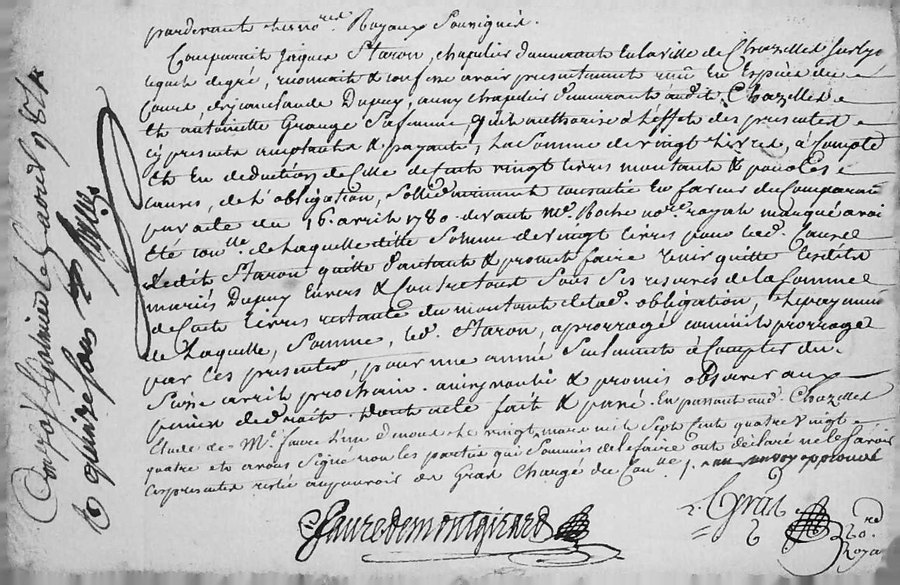 pardevant les no.res Royaux Soussignés.
Comparait Jacques Staron, chapelier demeurant en la ville de Chazelles sur Lyon
lequel de gré, reconnait & confesse avoir presentement reçu en Espèces de
cours, de Jean Claude Dupuy, aussy chapelier demeurant aud.t Chazelles
Et antoinette Grange Sa femme, quil authorise à l'effet des presentes
cy presents acceptants & payants, La Somme de vingt Livres, à Compte
Et En deduction de Celle de cent vingt livres montante & pour les
causes, de l'obligation, Sollidairement consentie En faveur du Comparant
par acte du 16. avril 1780. devant M.e Roche no.re royal marqué avoir
été con.llé. de Laquelle ditte Somme de vingt livres pour led. Causes
Ledit Staron quitte d'autant & promet faire tenir quitte Lesdits
mariés Dupuy Envers & Contre tous Sous Ses reserves de la Somme
de Cent livres restante du montant de lad. obligation, Le payement
de Laquelle, Somme, led. Staron, a prorrogé comme il prorroge
par ces presentes, pour une année Suivante à Compter du
Seize avril prochain. ainsy & promis observer aux
peines de droit. Dont acte fait & passé. En passant aud. Chazelles
Etude de M.e faure L'un d nous Le vingt mars mil Sept Cent quatre vingt
quatre et avons Signé non les parties qui Sommées de le faire ont déclaré ne le Savoir
Ces presentes resté au pouvoir de Gras Chargé du Con.lle ./. approuvé
fauredemontgirard
Gras
no.red
Roya
Con.lé à St Galmier le 1784
R quinze sous